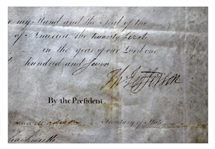 my Hand and the Seal of the
of America the Twenty first
in the year of our Lord one
hundred and Seven
Th: Jefferson
By the Prefident
Secretary of